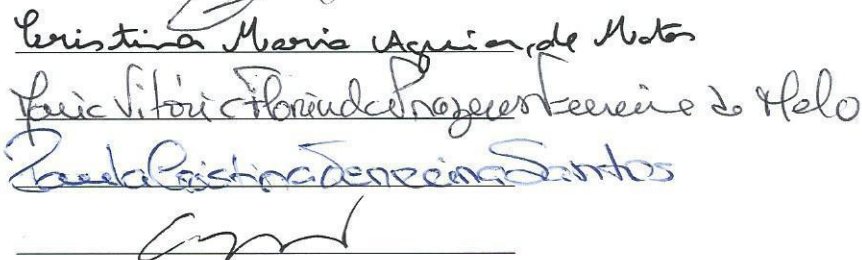 Cristina Maria Aguiar de Matos
Maria Vitória Florinda Prazeres Ferreira de Melo
Paula Cristina Ferreira Santos